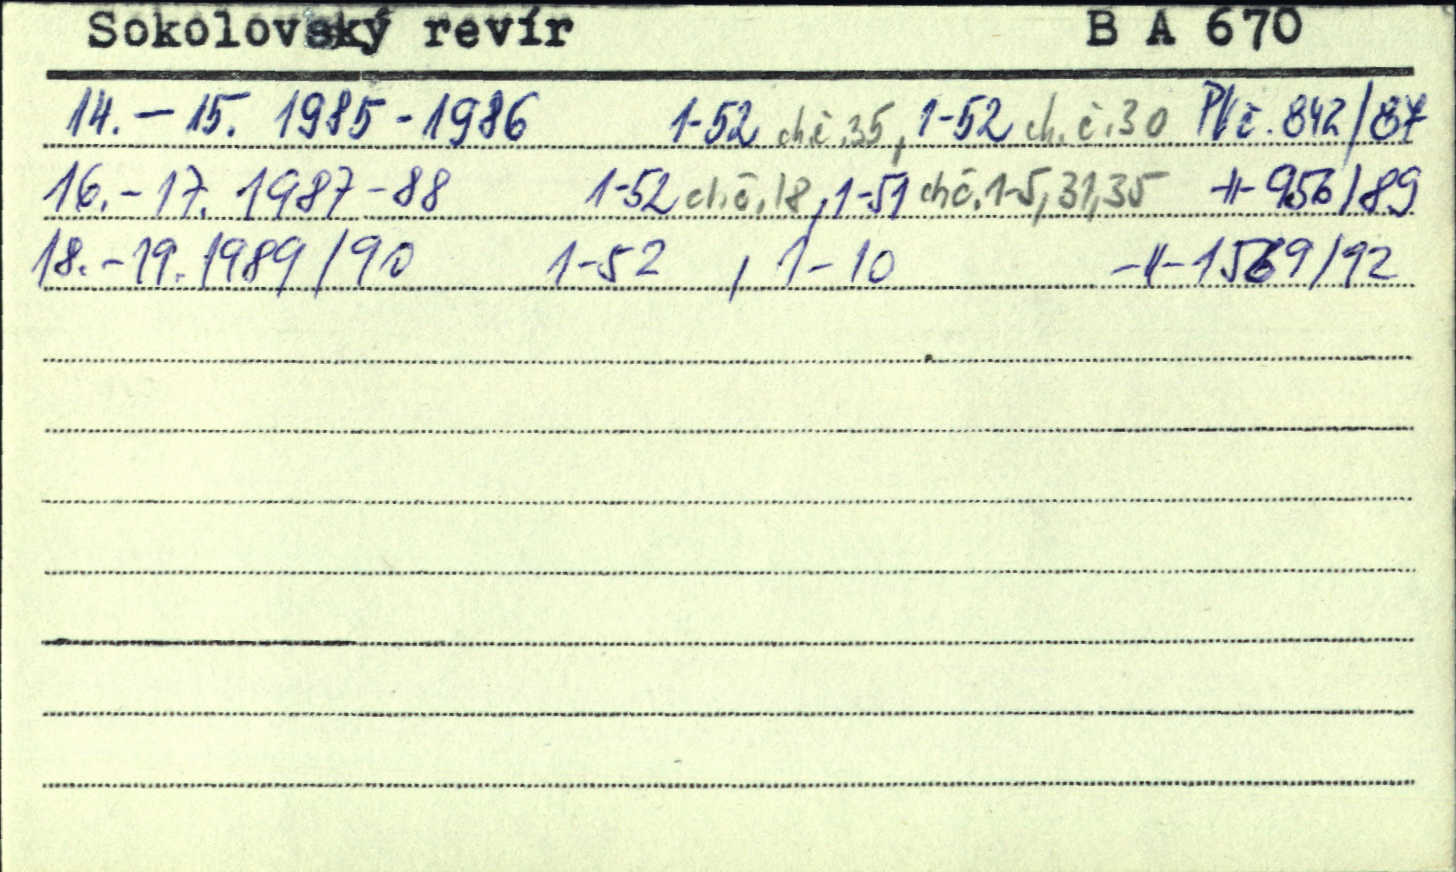 Sokolovský revír B A 670
14. - 15. 1985 - 1986 1-52 ch.č. 35, 1-52 ch. č. 30 Př. č. 842/87
16. - 17. 1987 - 88 1-52 ch. č. 18, 1-51 chč. 1-5, 31, 35 -||- 956/89
18. - 19. 1989/90 1-52 , 1-10 -||- 1569/92